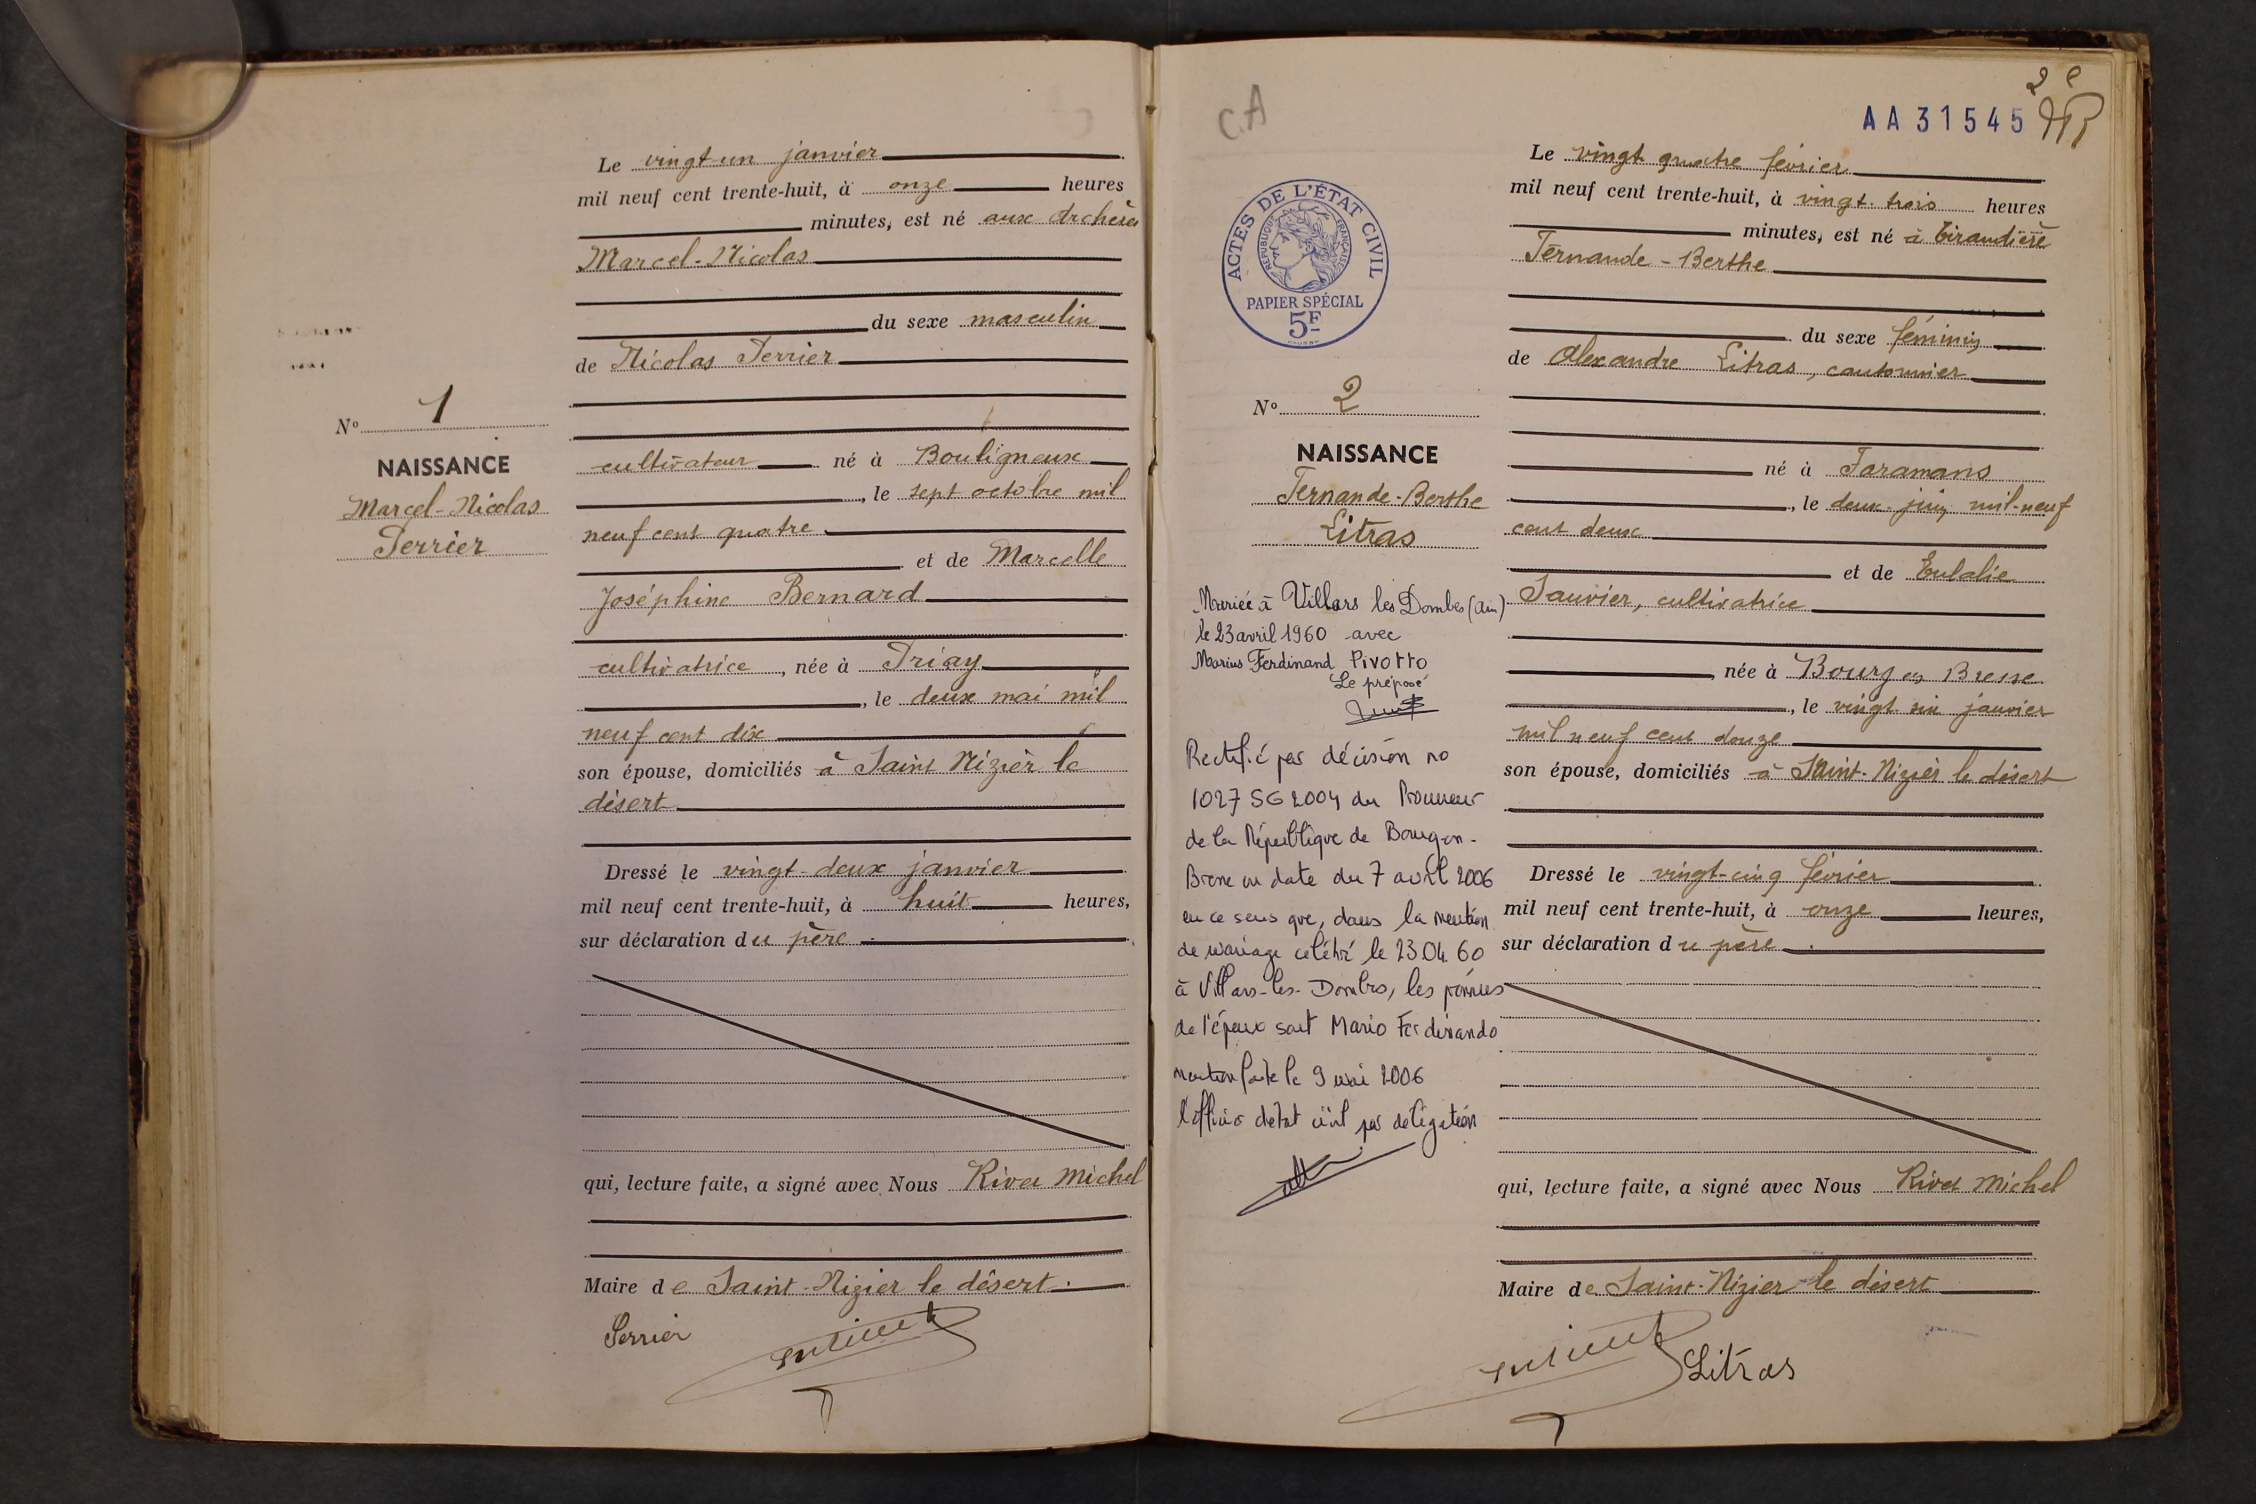 Le vingt-un janvier
mil neuf cent trente-huit, à onze heures
minutes, est né aux Archères
Marcel-Nicolas
du sexe masculin
de Nicolas Perrier
N° 1
NAISSANCE
Marcel-Nicolas
Perrier
cultivateur né à Bouligneux
, le sept octobre mil
neuf cent quatre
et de Marcelle
Joséphine Bernard
cultivatrice, née à Priay
, le deux mai mil
neuf cent dix
son épouse, domiciliés à Saint Nizier le
désert
Dressé le vingt-deux janvier
mil neuf cent trente-huit, à huit heures,
sur déclaration du père
qui, lecture faite, a signé avec Nous Rivet Michel
Maire de Saint-Nizier le désert.
Perrier
C.A
2e
AA31545
ACTES DE L'ÉTAT CIVIL
RÉPUBLIQUE FRANÇAISE
PAPIER SPÉCIAL
5F
N° 2
NAISSANCE
Fernande-Berthe
Litras
Mariée à Villars les Dombes (Ain)
le 23 avril 1960 avec
Marius Ferdinand Pivotto
Le préposé
Rectifié par décision no
1027 SG 2004 du Procureur
de la République de Bourg-en-
Bresse en date du 7 avril 2006
en ce sens que, dans la mention
de mariage célébré le 23.04.60
à Villars-les-Dombes, les prénoms
de l'époux sont Mario Ferdinando
mention faite le 9 mai 2006
l'officier d'état civil par délégation
Le vingt quatre février
mil neuf cent trente-huit, à vingt-trois heures
minutes, est né à Giraudière
Fernande-Berthe
du sexe féminin
de Alexandre Litras, cantonnier
né à Faramans
, le deux juin mil-neuf
cent deux
et de Eulalie
Sauvier, cultivatrice
, née à Bourg en Bresse
, le vingt six janvier
mil neuf cent douze
son épouse, domiciliés à Saint-Nizier le désert
Dressé le vingt-cinq février
mil neuf cent trente-huit, à onze heures,
sur déclaration du père
qui, lecture faite, a signé avec Nous Rivet Michel
Maire de Saint-Nizier le désert
Litras